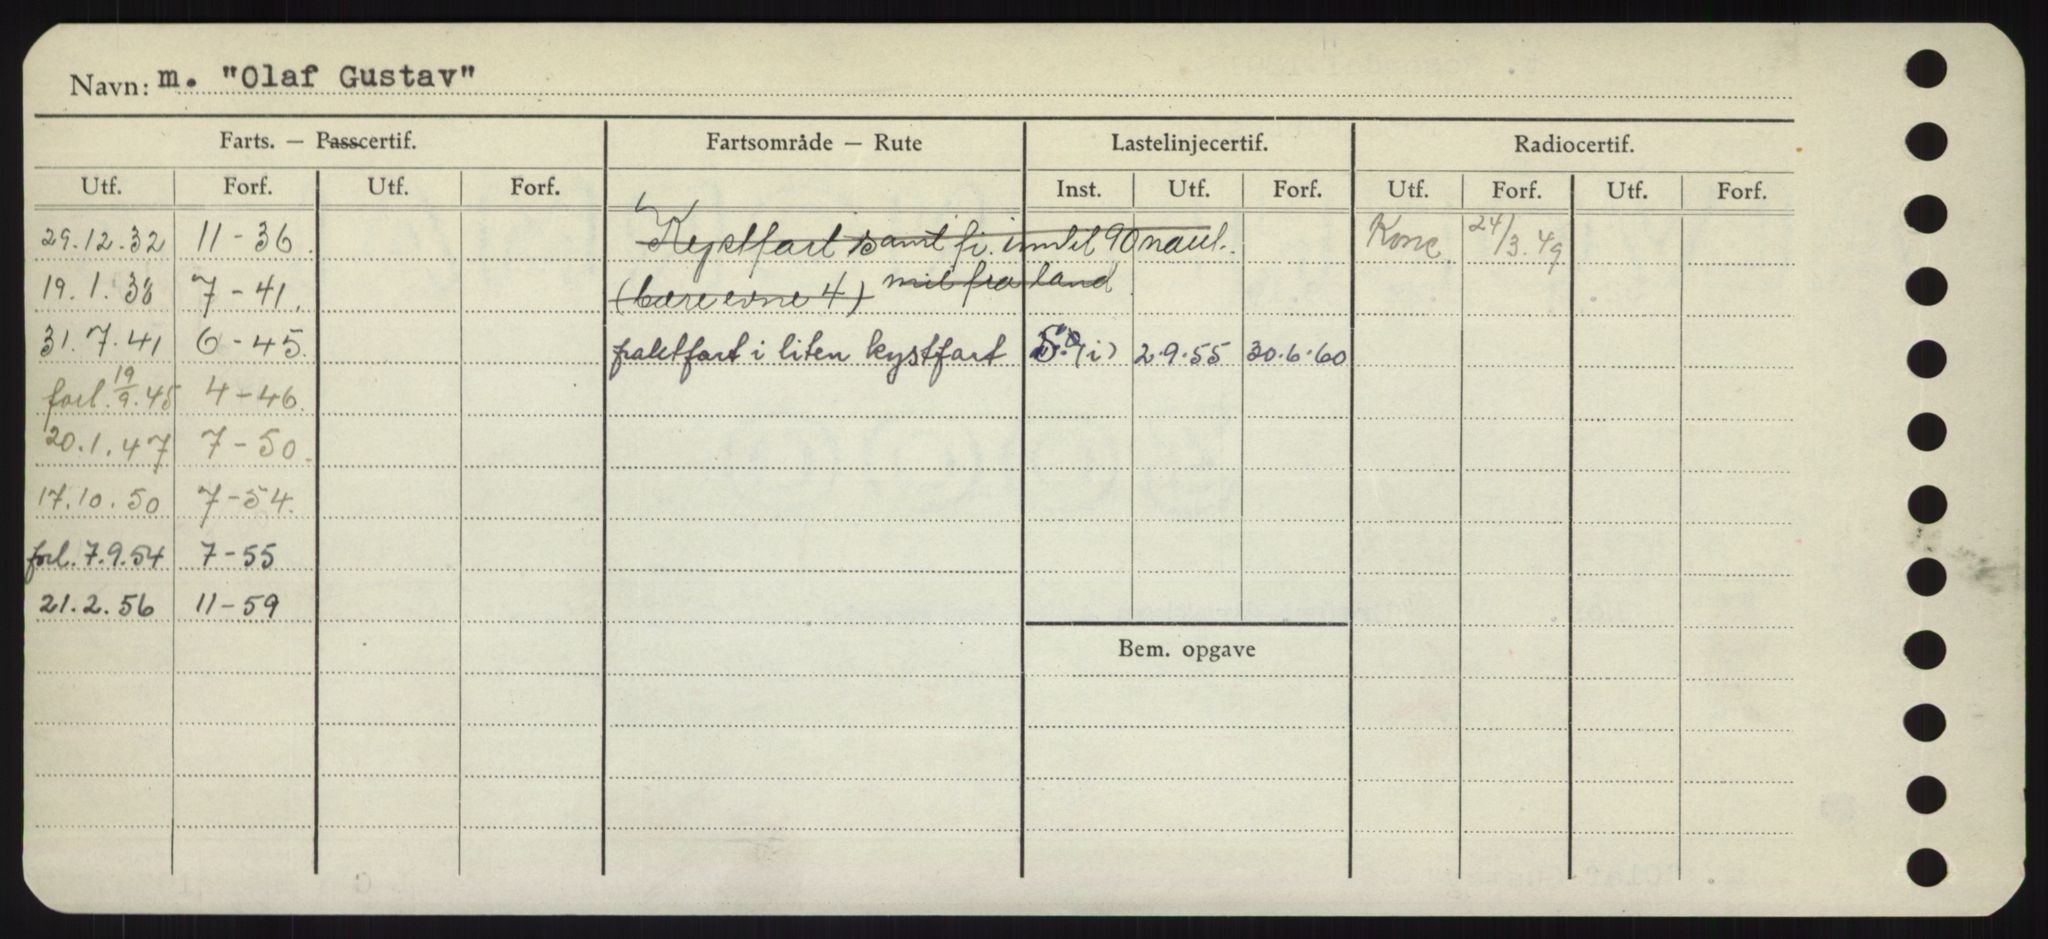 Navn: m. "Olaf Gustav"
Farts. — Passcertif. Fartsområde — Rute Lastelinjecertif. Radiocertif.
Utf. Forf. Utf. Forf. Inst. Utf. Forf. Utf. Forf. Utf. Forf.
29.12.32 11-36. Kystfart samt fi. inntil 90 naut. Konc. 24/3.49
19.1.38 7-41. (bæreevne 4) mil fra land
31.7.41 6-45. fraktfart i liten kystfart S. (i) 2.9.55 30.6.60
forl. 19/9.45 4-46.
20.1.47 7-50.
17.10.50 7-54.
forl. 7.9.54 7-55
21.2.56 11-59
Bem. opgave